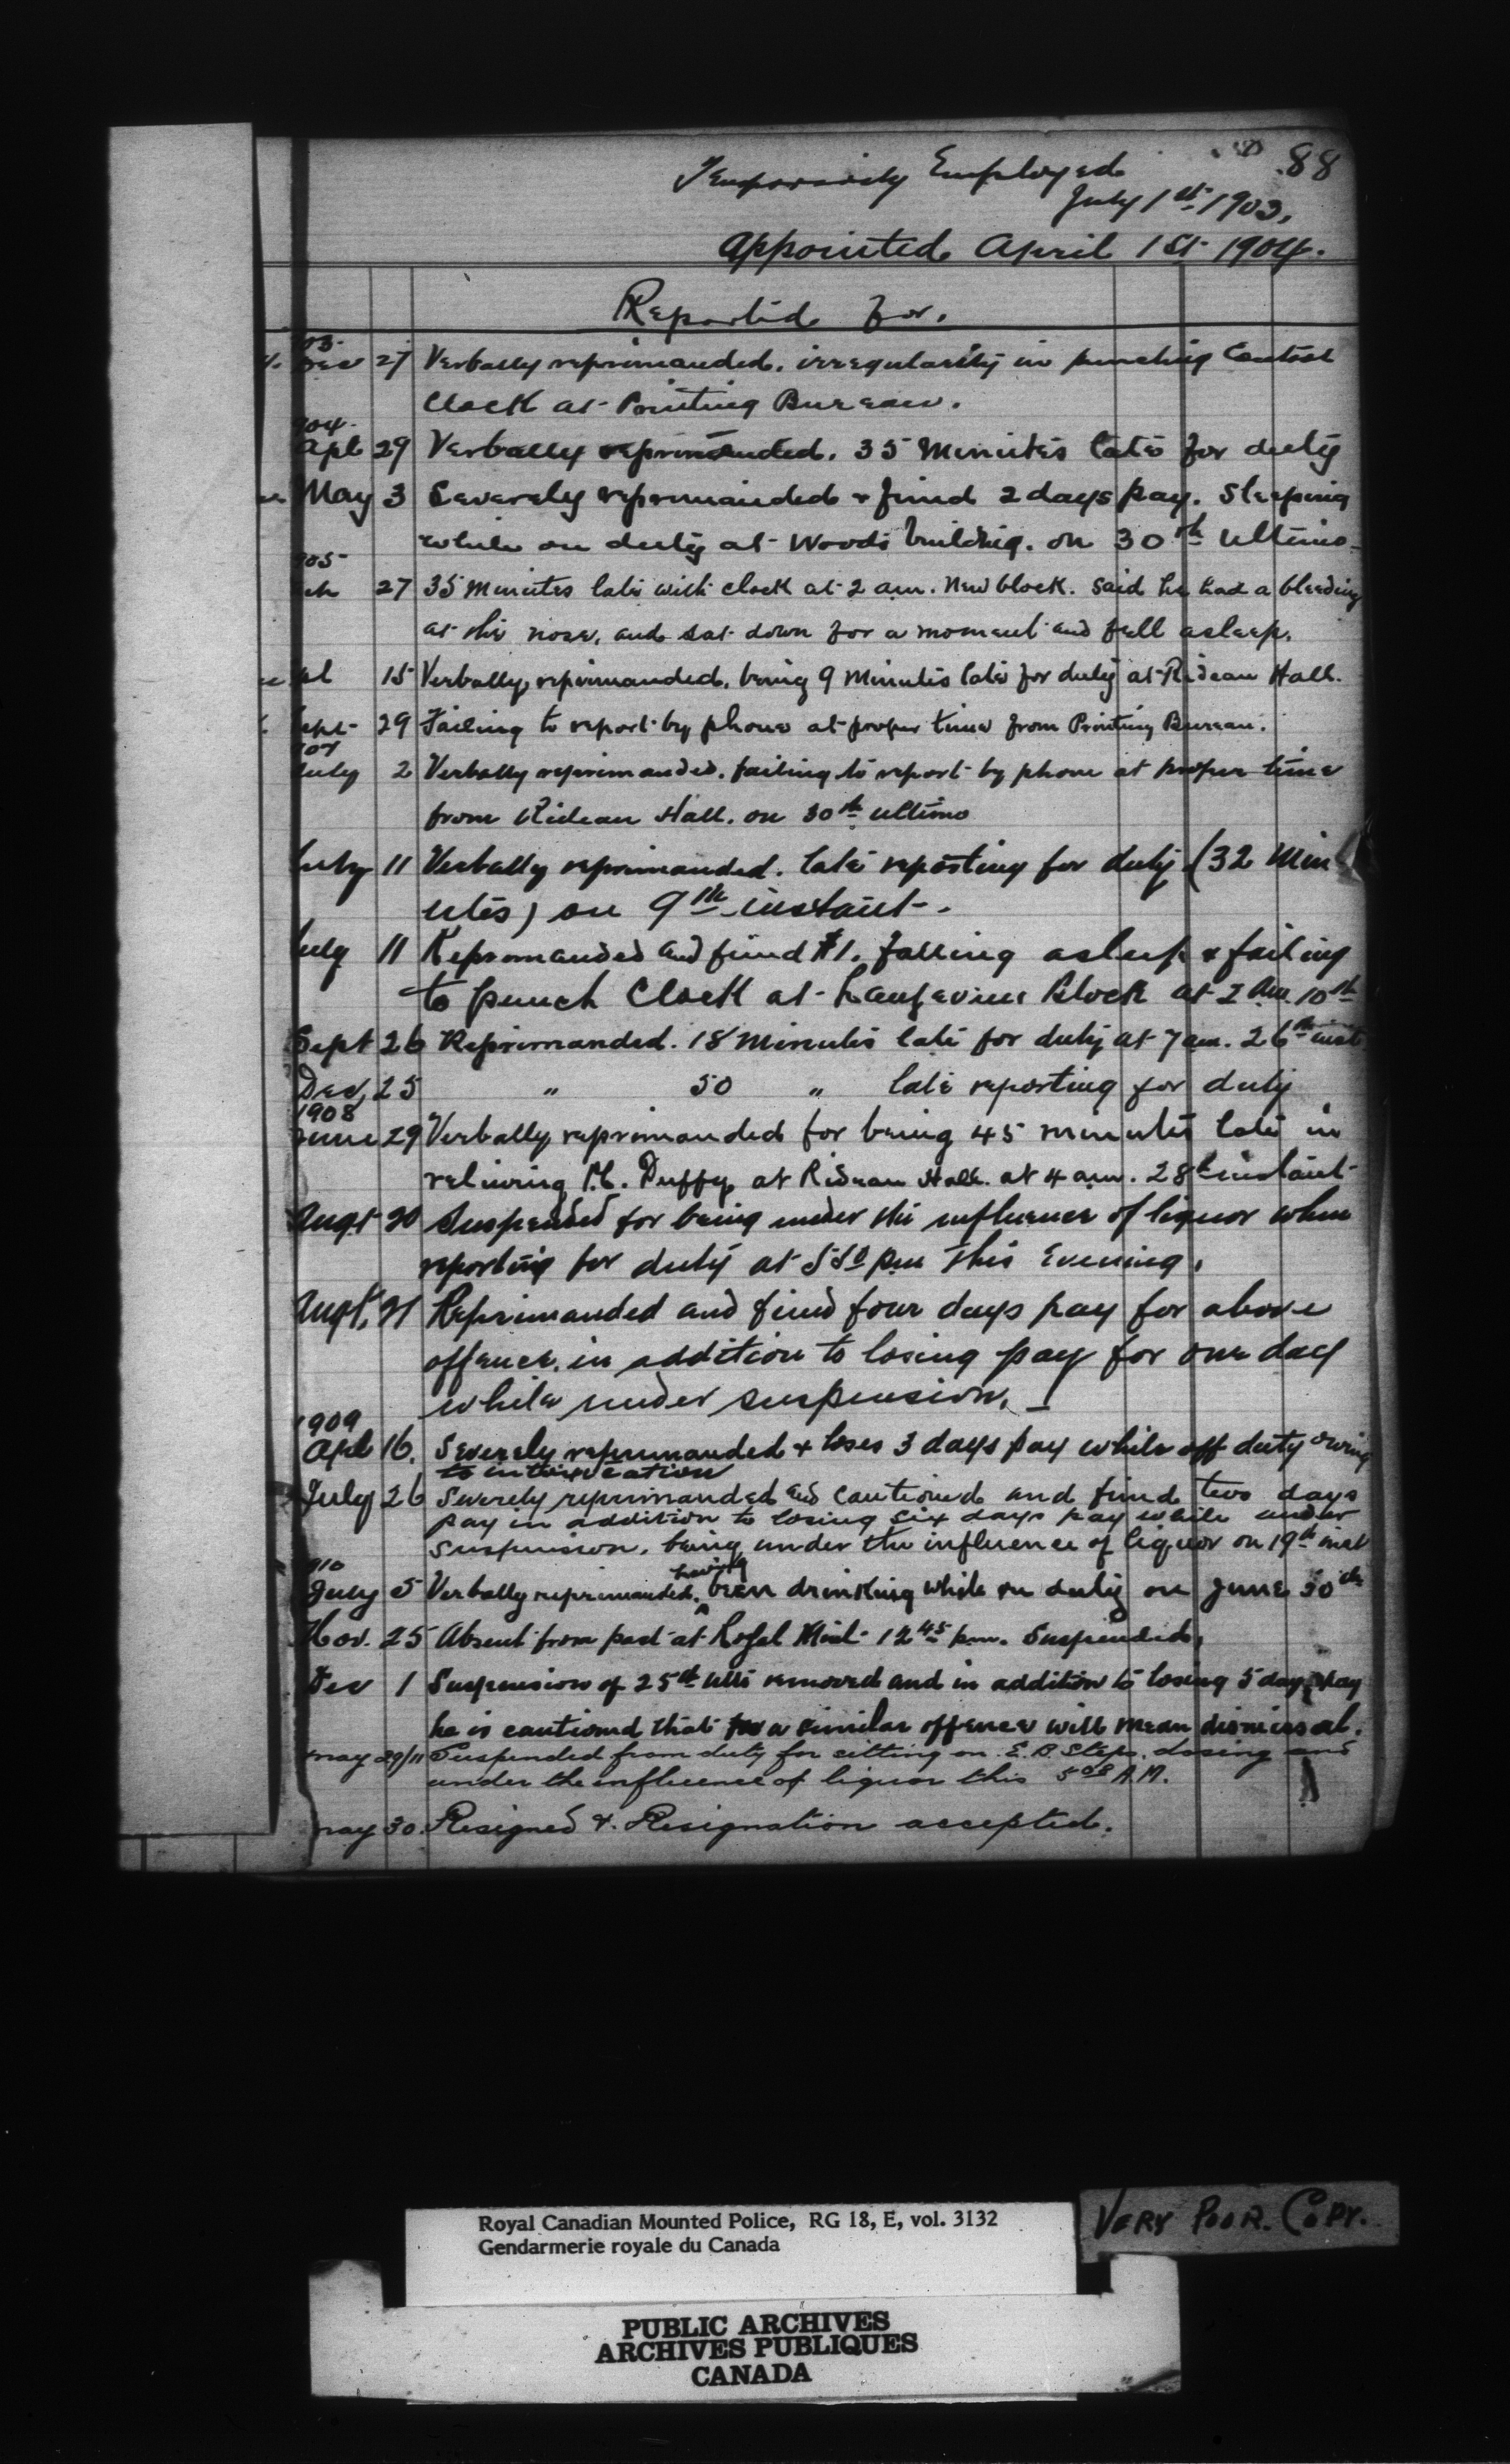 88
Temporarily Employed
July 1st 1903,
Appointed April 1st 1904.
Reported for.
903
Dec 27 Verbally reprimanded. irregularity in punching Control
Clock at Printing Bureau.
904
Apl 29 Verbally reprimanded. 35 Minutes late for duty
May 3 Severely reprimanded & fined 2 days pay. Sleeping
while on duty at Woods building. on 30th Ultimo
905
27 35 Minutes late with clock at 2 am. New block. Said he had a bleeding
at the nose, and sat down for a moment and fell asleep.
15 Verbally reprimanded. being 9 Minutes late for duty at Rideau Hall.
Sept 29 Failing to report by phone at proper time from Printing Bureau.
July 2 Verbally reprimanded. failing to report by phone at proper time
from Rideau Hall. on 30th ultimo
July 11 Verbally reprimanded. late reporting for duty (32 Min
utes) on 9th instant.
July 11 Reprimanded and fined $1. falling asleep & failing
to punch Clock at Langevine Block at 2 Am 10th
Sept 26 Reprimanded. 18 Minutes late for duty at 7 am. 26th inst
Dec, 25 " 50 " late reporting for duty
1908
June 29 Verbally reprimanded for being 45 minutes late in
relieving P.C. Duffy at Rideau Hall. at 4 am. 28th instant
Augt 30 Suspended for being under the influence of liquor when
reporting for duty at 5 50 pm this Evening.
Augt, 31 Reprimanded and fined four days pay for above
offence, in addition to losing pay for one day
while under suspension.
1909
Apl 16. Severely reprimanded & loses 3 days pay while off duty owing
to intoxication
July 26 Severely reprimanded and cautioned and fined two days
pay in addition to losing six days pay while under
suspension. being under the influence of liquor on 19th inst
910
July 5 Verbally reprimanded. having been drinking while on duty on June 30th
Nov. 25 Absent from post at Royal Mint 12 45 pm. Suspended,
Dec 1 Suspension of 25th ulto removed and in addition to losing 5 days pay
he is cautioned that a similar offence will mean dismissal.
May 29/11 Suspended from duty for sitting on E. B. Steps, dosing and
under the influence of liquor this 5 08 A.M.
May 30. Resigned &. Resignation accepted.
Royal Canadian Mounted Police, RG 18, E, vol. 3132
Gendarmerie royale du Canada
VERY POOR. COPY.
PUBLIC ARCHIVES
ARCHIVES PUBLIQUES
CANADA